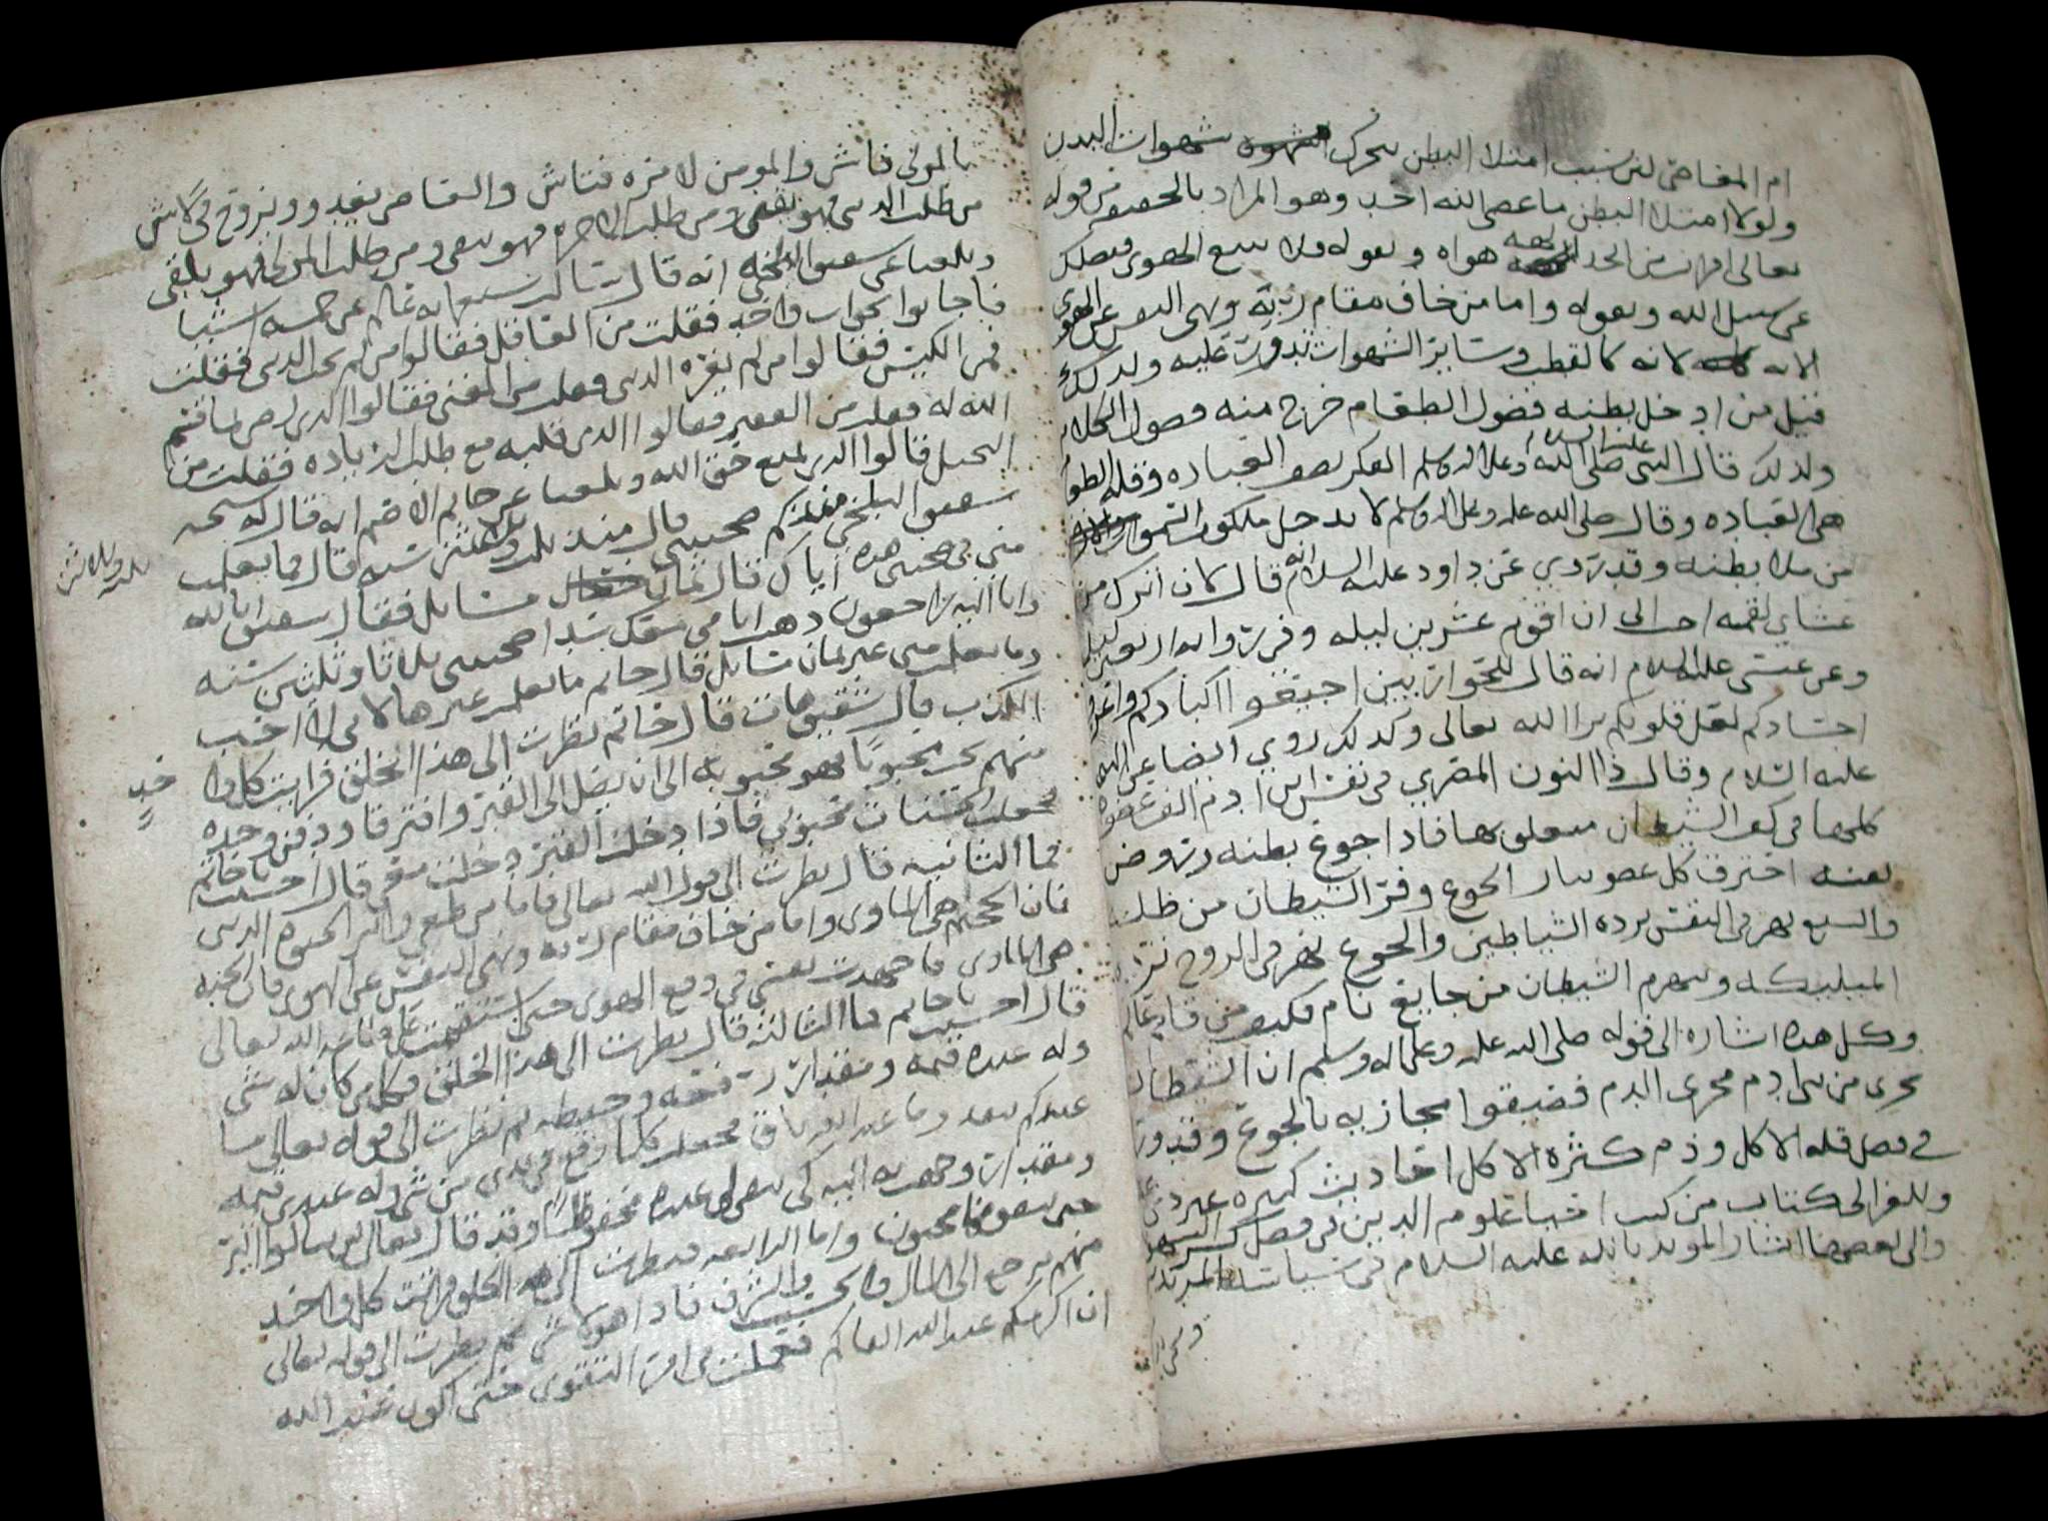 ام المعاصي لان سبب امتلا البطن تتحرك شهوات البدن
ولولا امتلا البطن ما عصى الله احد وهو المراد بالحصر في قوله
تعالى افرايت من اتخذ الهه هواه وبقوله ولا تتبع الهوى فيضلك
عن سبيل الله وبقوله واما من خاف مقام ربه ونهى النفس عن الهوى
لانه كالقطب وسائر الشهوات تدور عليه ولذلك
قيل من ادخل بطنه فضول الطعام خرج منه فضول الكلام
ولذلك قال النبي صلى الله عليه وعلى اله وسلم الفكر نصف العباده وقله الطعام
هي العباده وقال صلى الله عليه وعلى اله وسلم لا يدخل ملكوت السموات
من ملا بطنه وقد روي عن داود عليه السلام انه قال لان اترك من
عشاي لقمه احب الى ان اقوم عشرين ليله
وعن عيسى عليه السلام انه قال للحواريين اجيعوا اكبادكم واعروا
اجسادكم لعل قلوبكم ترا الله تعالى وكذلك روي ايضا عن
عليه السلام وقال ذا النون المصري في نفس ابن ادم الف عضو
كلها في كف الشيطان متعلق بها فاذا جوع بطنه وروض
نفسه احترق كل عضو بنار الجوع وفر الشيطان من ظله
والشبع نهر في النفس ترده الشياطين والجوع نهر في الروح ترده
المليكه وينهزم الشيطان من جايع نام فكيف من
وكل هذه اشاره الى قوله صلى الله عليه وعلى اله وسلم ان الشيطان
يجري من بني ادم مجرى الدم فضيقوا مجاريه بالجوع وقد ورد
في فضل قله الاكل وذم كثره الاكل احاديث كثيره
وللغزالي كتاب من كتب احيا علوم الدين في فضل كسر الشهوتين
والى بعضها اشار المويد بالله عليه السلام في سياسه المريدين
بالموتى فاش والمومن لامره فتاش والعاصي يغدو ويروح في لاش
من طلب الدنيا فهو يفنى ومن طلب الاخره فهو يبقى ومن طلب المولى فهو يلقى
وبلغنا عن شقيق البلخي انه قال سالت سبعمايه عالم عن خمسه اشيا
فاجابوا بجواب واحد فقلت من العاقل فقالوا من لم يحب الدنيا فقلت
فمن الكيس فقالوا من لم تغره الدنيا فقلت من الغني فقالوا الذي رضي بما قسم
الله له فقلت من الفقير فقالوا الذي قلبه مع طلب الزياده فقلت من
البخيل قالوا الذي يمنع حق الله وبلغنا عن حاتم الاصم انه قال له شيخه
شقيق البلخي منذ كم صحبتني قال منذ ثلث وثلثين سنه قال فما تعلمت
مني في صحبتي هذه اياك قال ثمان مسايل فقال شقيق انا لله
وانا اليه راجعون ذهب ايامي معك سدا صحبتني ثلاثا وثلثين سنه
وما تعلمت مني غير ثمان مسايل قال حاتم ما تعلمت غيرها لاني لا احب
الكذب قال شقيق هات قال حاتم نظرت الى هذا الخلق فرايت كل واحد
منهم يحب محبوبا فهو مع محبوبه الى ان يصل الى القبر وافترقا ودفن وحده
فجعلت الحسنات محبوبي فاذا دخلت القبر دخلت معي قال احسنت يا حاتم
فما الثانيه قال نظرت الى قول الله تعالى فاما من طغى واثر الحيوه الدنيا
فان الجحيم هي الماوى واما من خاف مقام ربه ونهى النفس عن الهوى فان الجنه
هي الماوى فاجهدت نفسي في دفع الهوى حتى استقمت على طاعه الله تعالى
قال احسنت يا حاتم فما الثالثه قال نظرت الى هذا الخلق فكل من كان له شي
وله عنده قيمه ومقدار رفعه وحفظه ثم نظرت الى قوله تعالى ما
عندكم ينفد وما عند الله باق فجعلت كلما وقع في يدي من شي وله عندي قيمه
ومقدار وجهت به اليه كي يبقى لي عنده محفوظا وقد قال تعالى لن تنالوا البر
حتى تنفقوا مما تحبون واما الرابعه فنظرت الى هذا الخلق فرايت كل واحد
منهم يرجع الى المال والحسب والشرف فاذا هو لا شي ثم نظرت الى قوله تعالى
ان اكرمكم عند الله اتقاكم فعملت في امر التقوى حتى اكون عند الله
ثلث وثلاثين